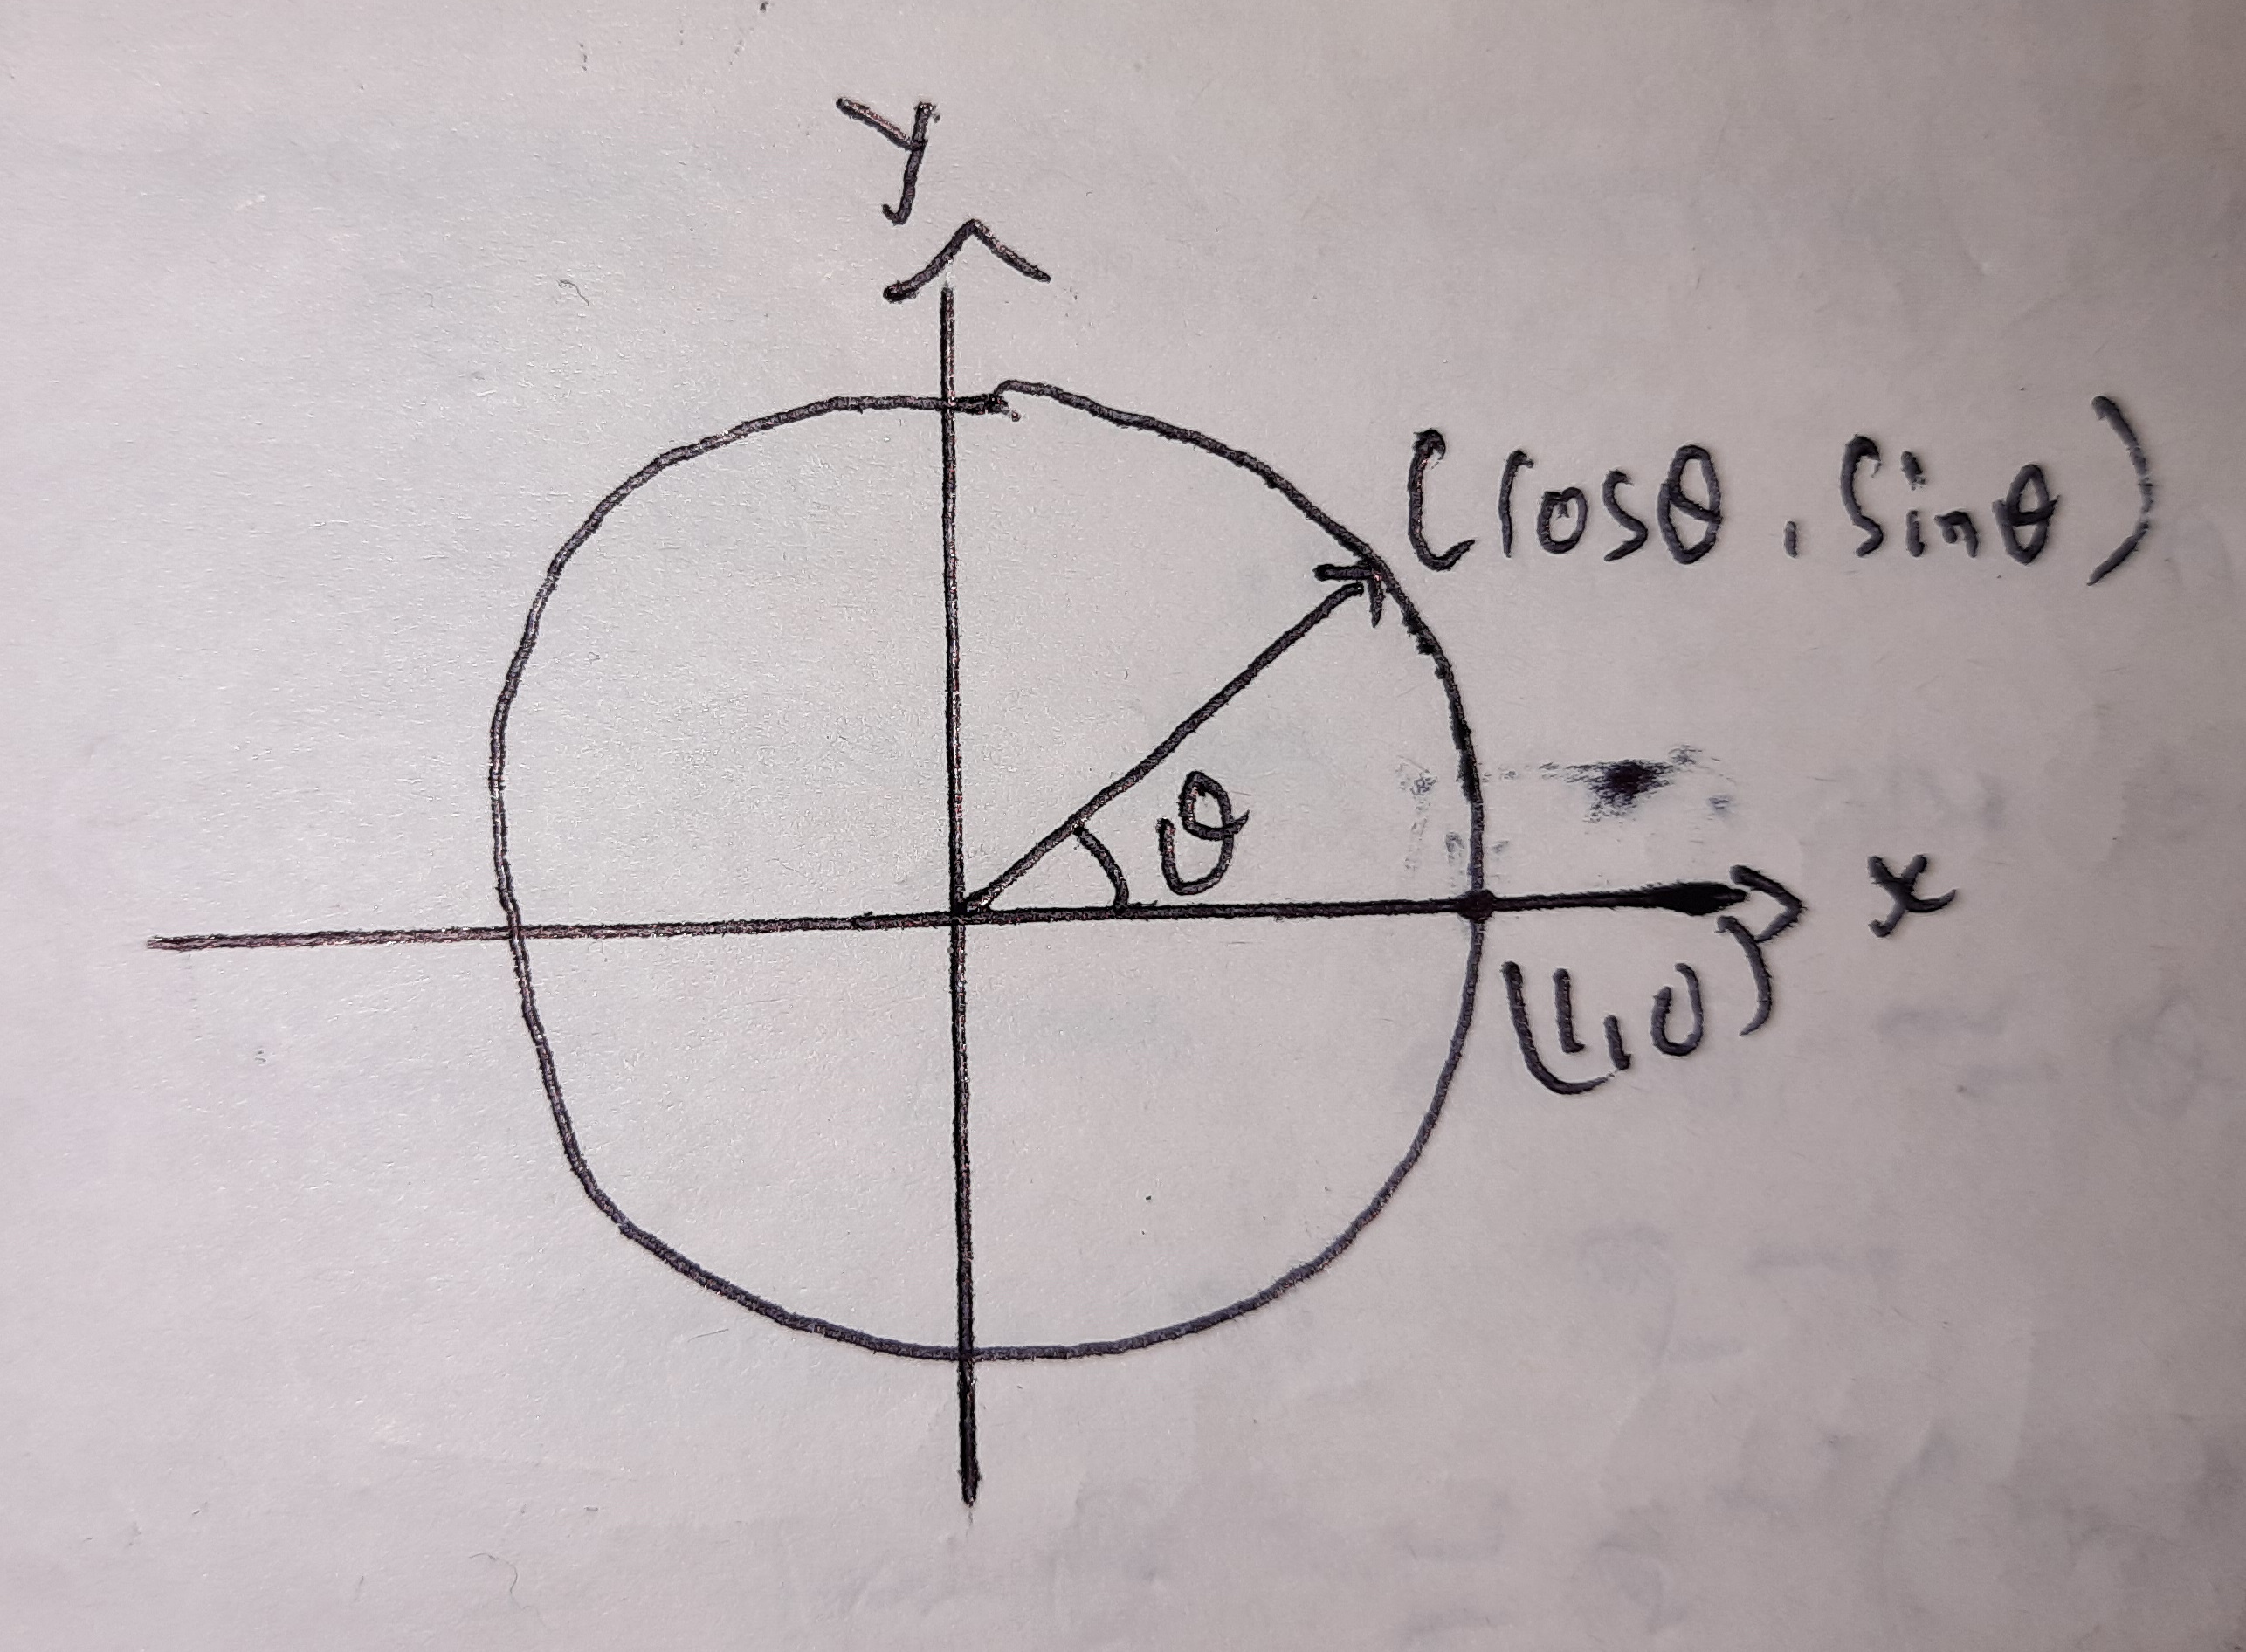 y
(cosθ, sinθ)
θ
x
(1,0)